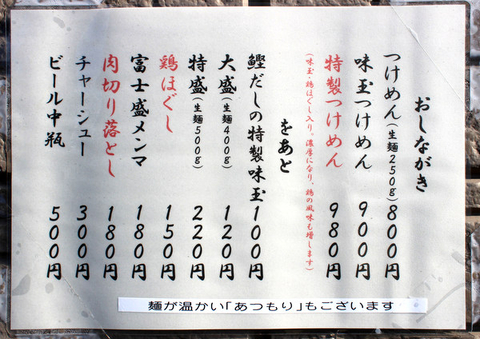 おしながき
つけめん(生麺250g)800円
味玉つけめん 900円
特製つけめん 980円
(味玉・鶏ほぐし入り。濃厚になり、鶏の風味も増します)
をあと
鰹だしの特製味玉100円
大盛(生麺400g) 120円
特盛(生麺500g) 220円
鶏ほぐし 150円
富士盛メンマ 180円
肉切り落とし 180円
チャーシュー 300円
ビール中瓶 500円
麺が温かい「あつもり」もございます